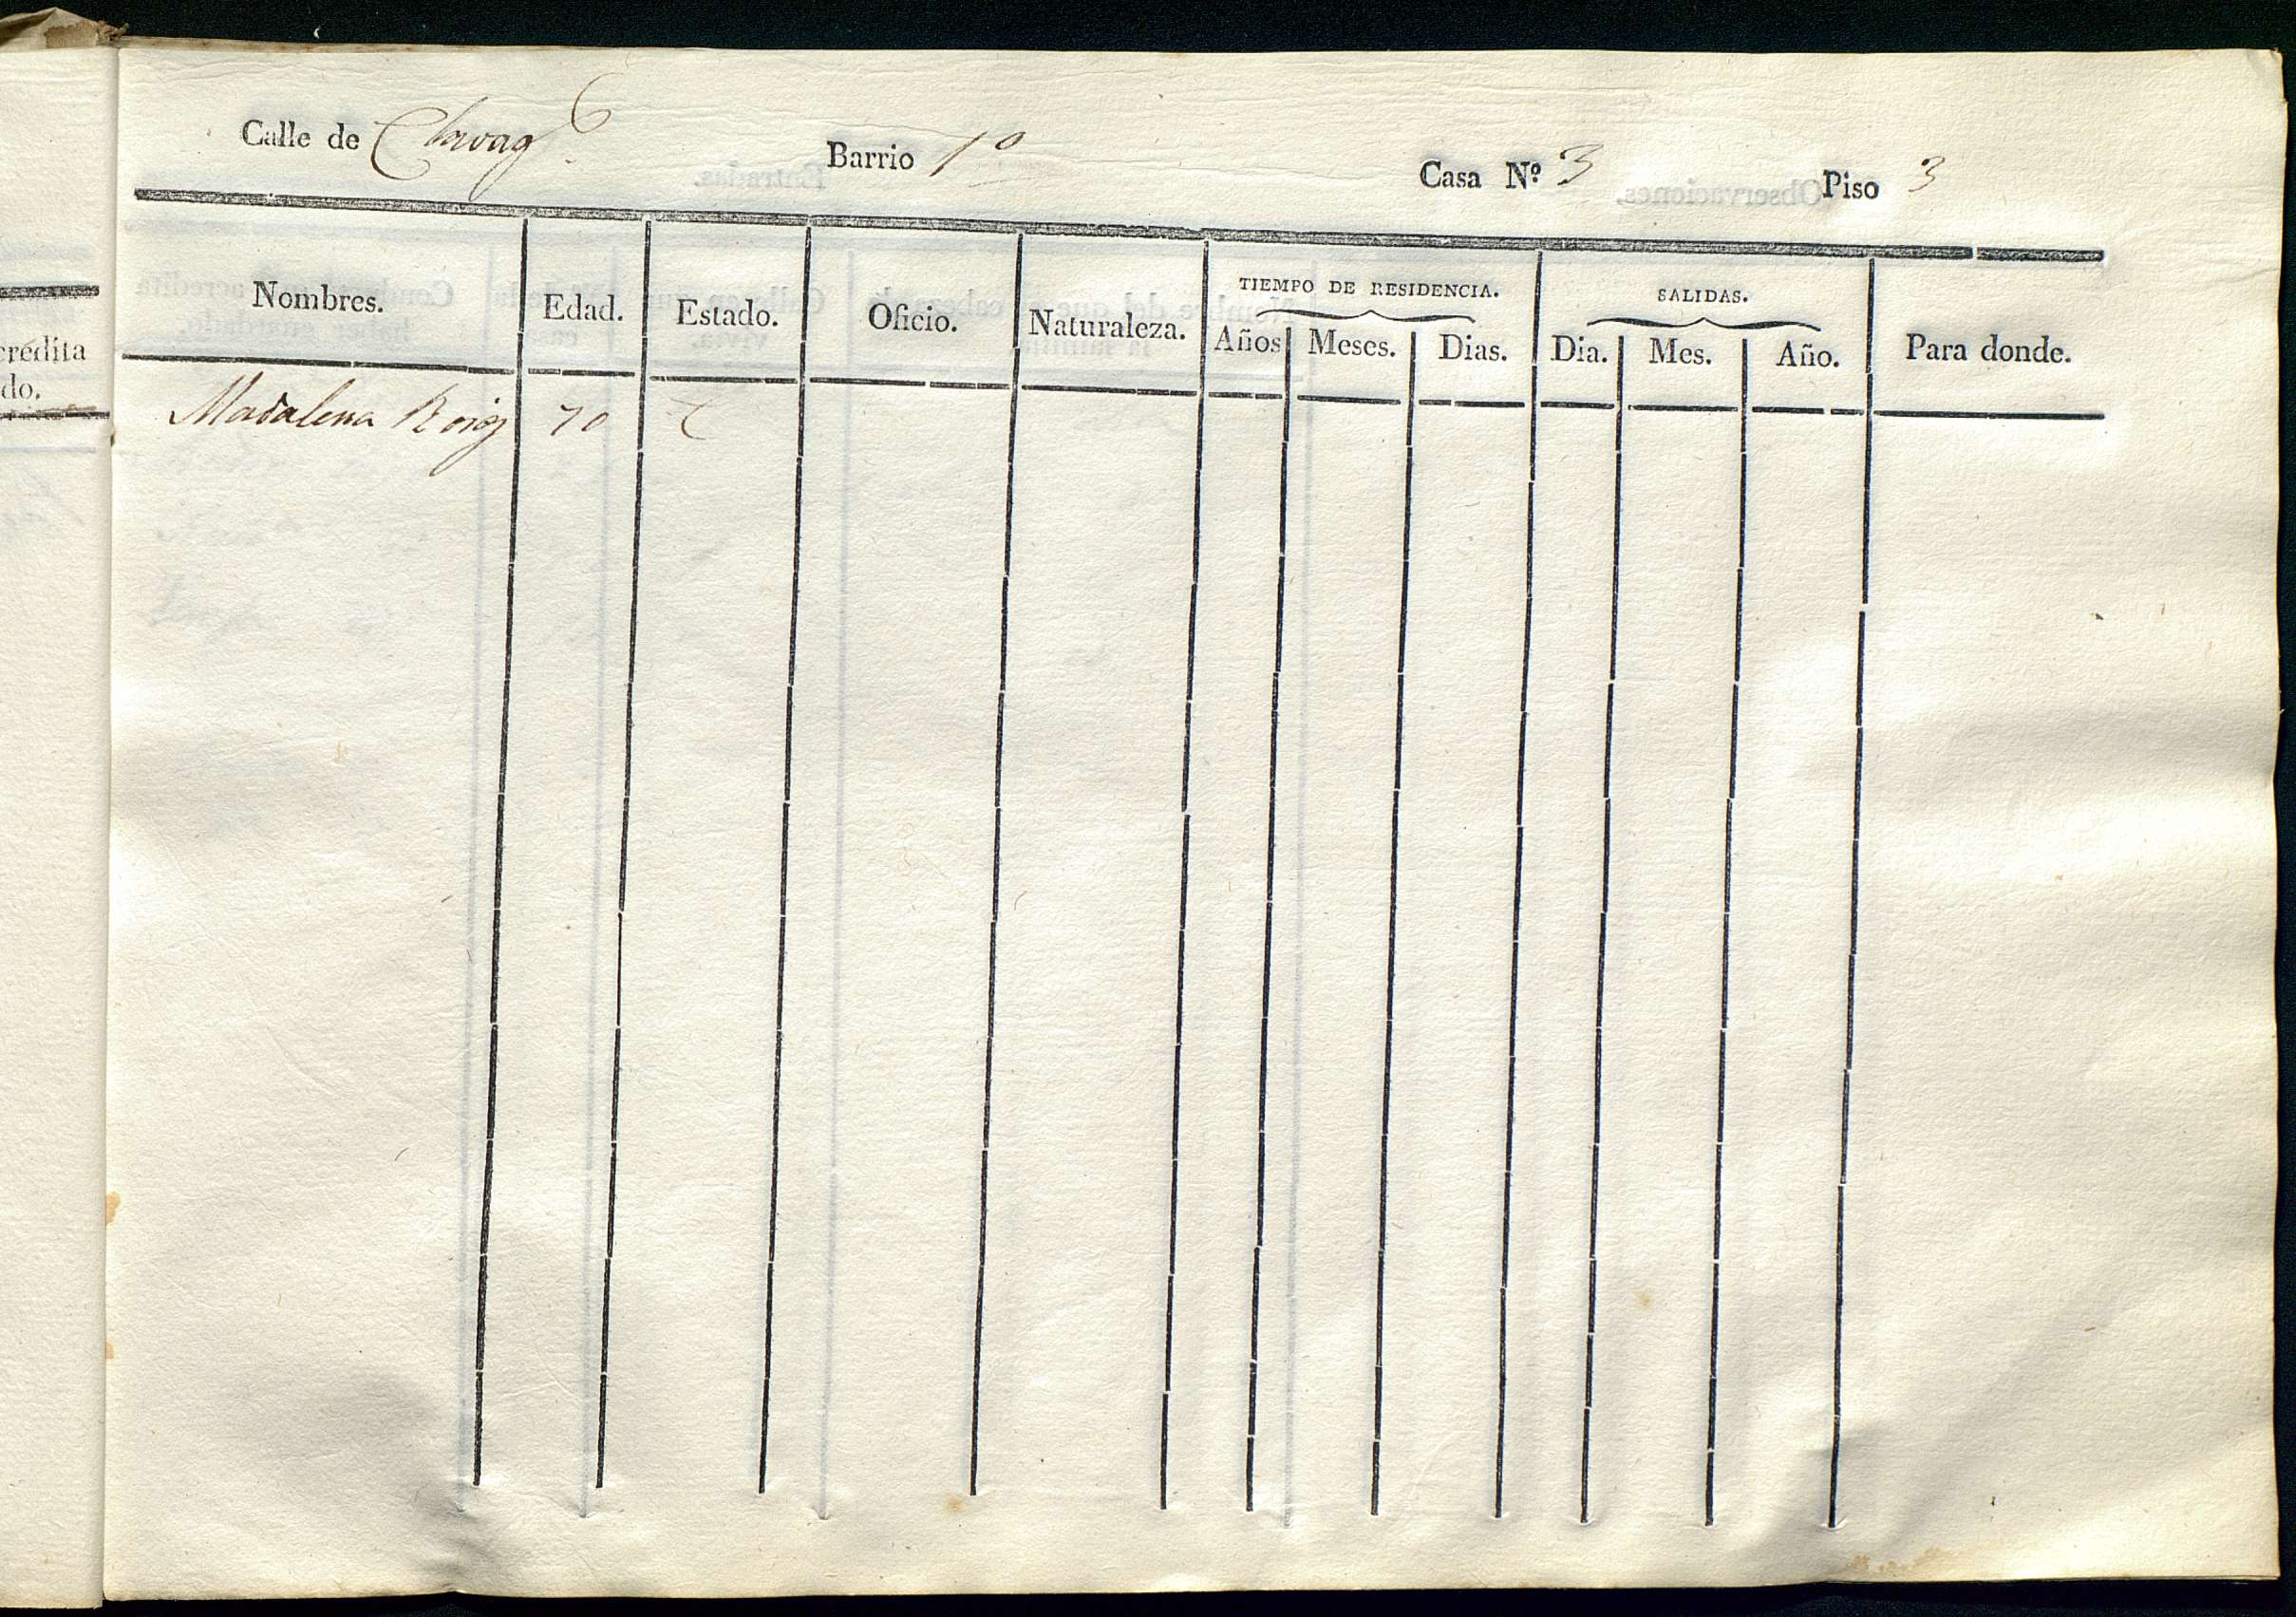 Calle de Barrio 1º Casa Nº 3 Piso 3
Nombres. Edad. Estado. Oficio. Naturaleza. TIEMPO DE RESIDENCIA. Años Meses. Dias. SALIDAS. Dia. Mes. Año. Para donde.
Madalena Roig 70
do.